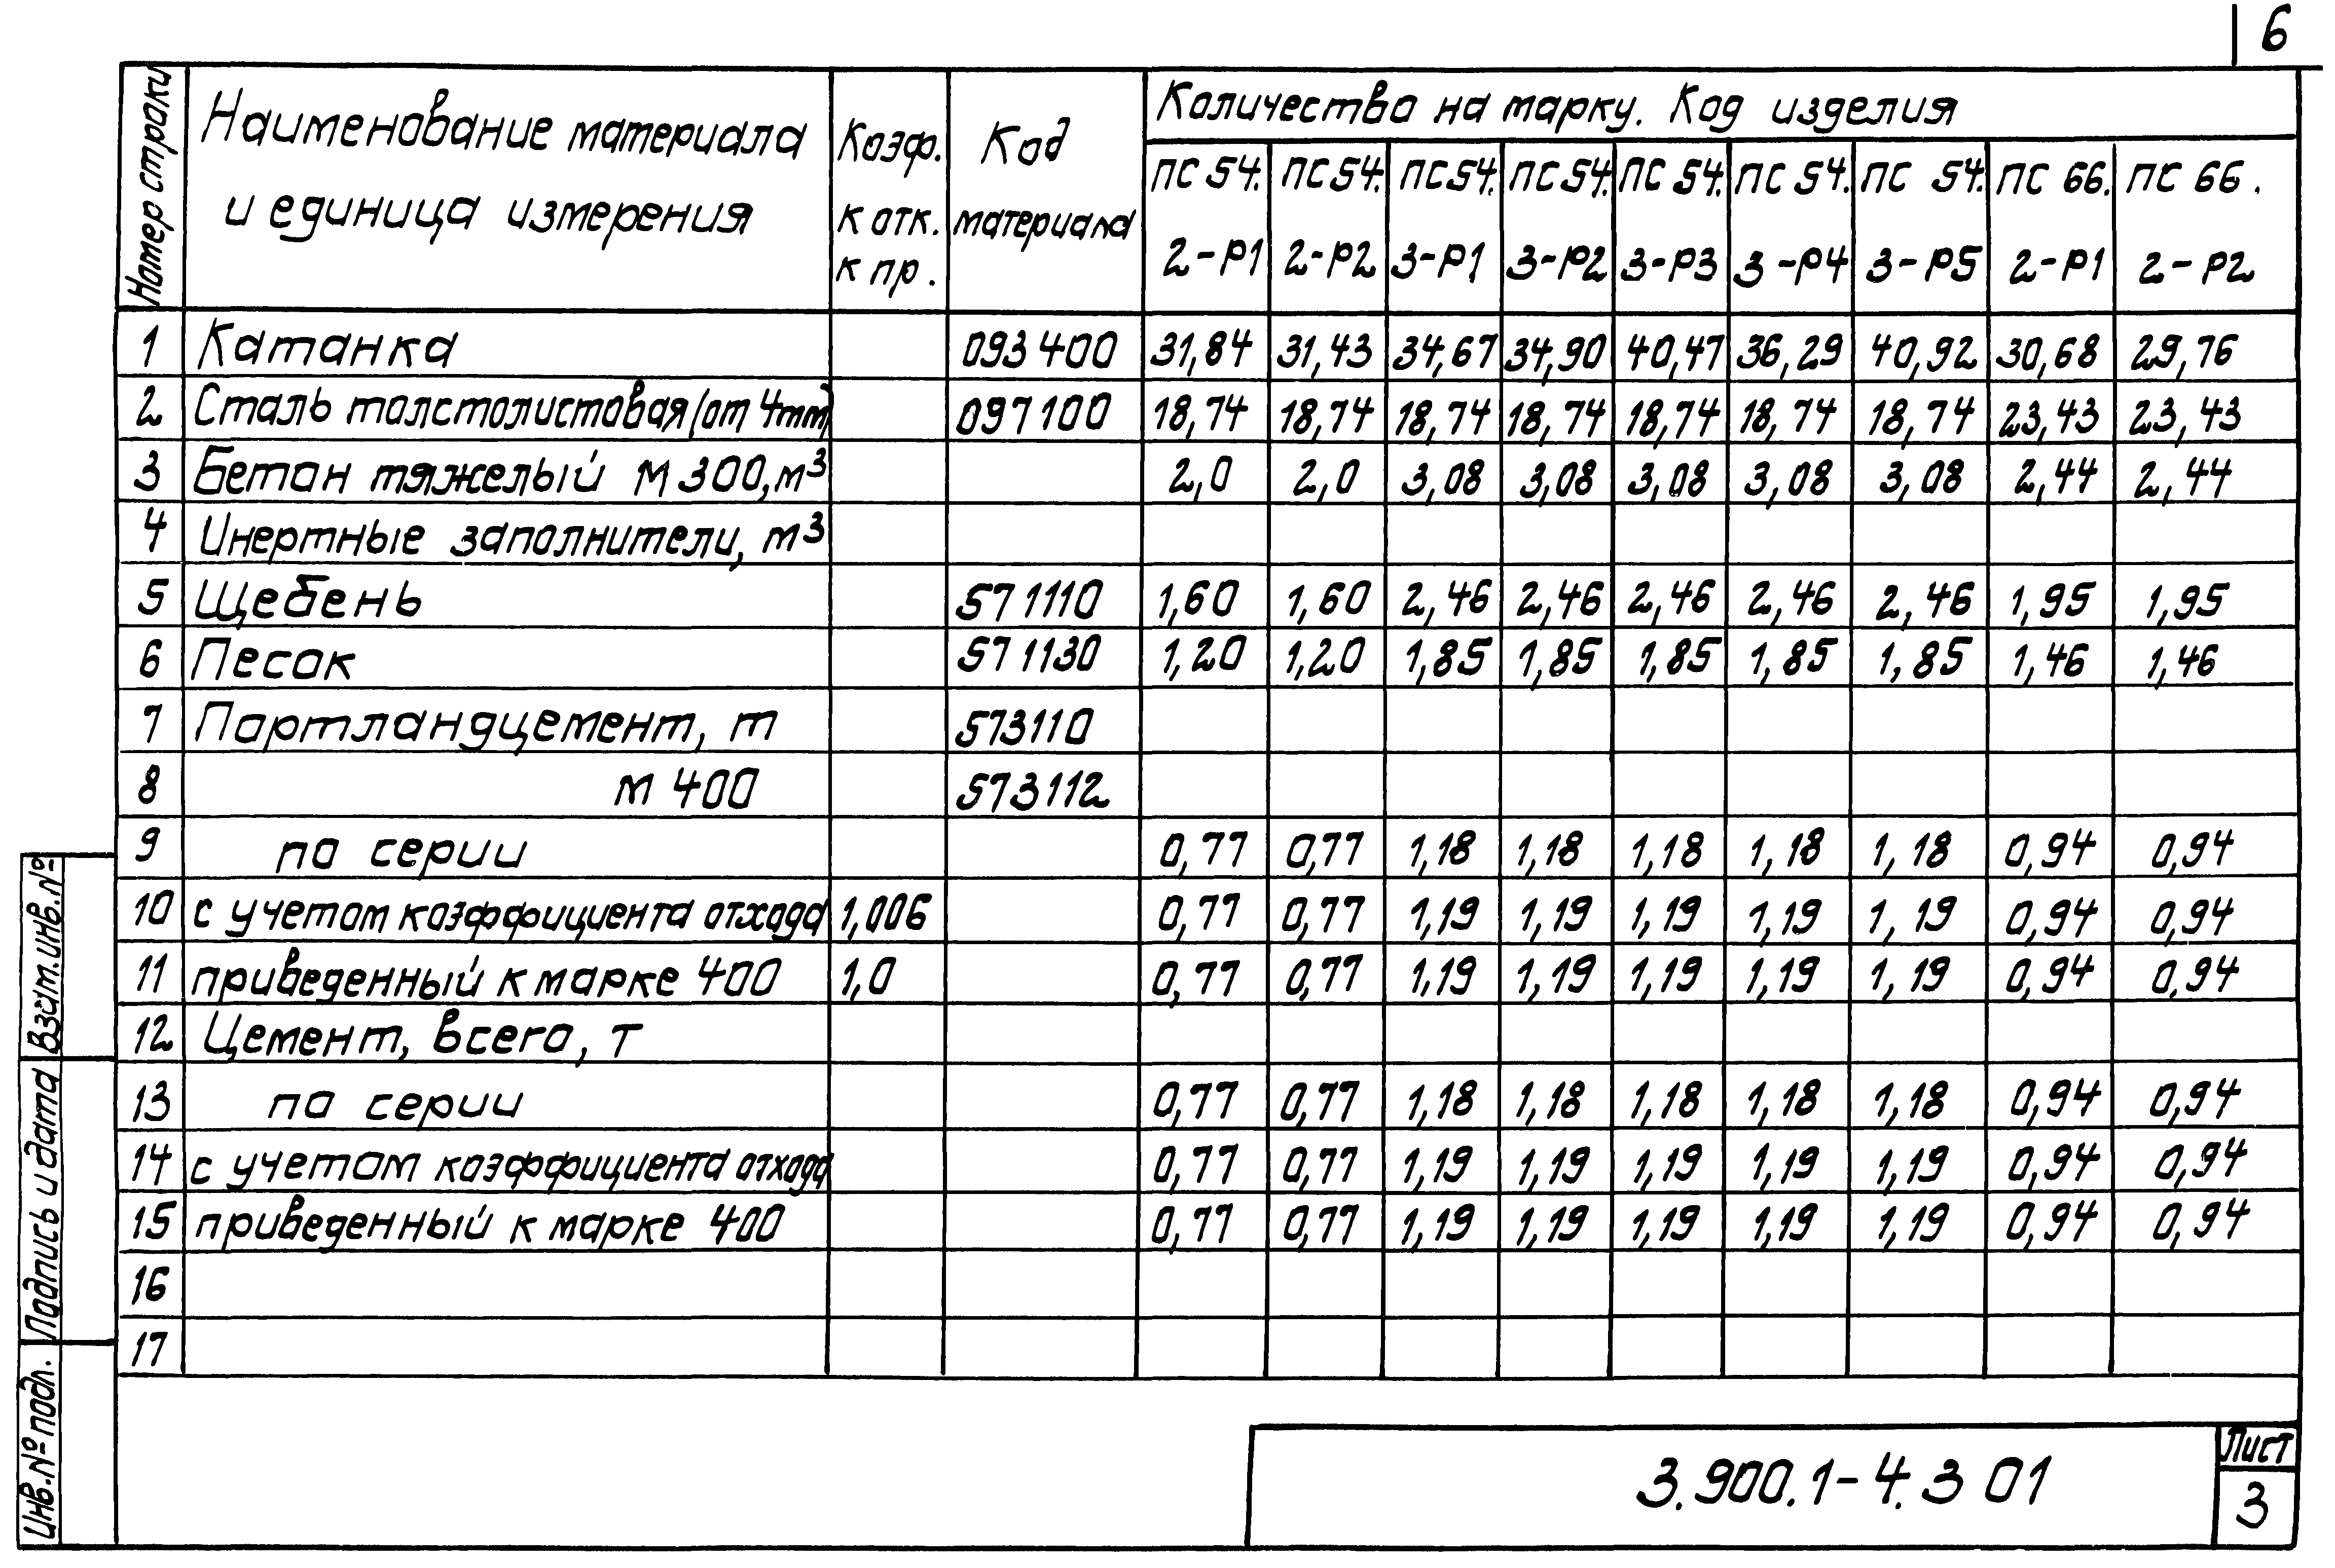 6
Номер строки | Наименование материала и единица измерения | Коэф. к отк. к пр. | Код материала | Количество на марку. Код изделия
ПС 54. 2-Р1 | ПС 54. 2-Р2 | ПС 54. 3-Р1 | ПС 54. 3-Р2 | ПС 54. 3-Р3 | ПС 54. 3-Р4 | ПС 54. 3-Р5 | ПС 66. 2-Р1 | ПС 66. 2-Р2
1 Катанка 093400 31,84 31,43 34,67 34,90 40,47 36,29 40,92 30,68 29,76
2 Сталь толстолистовая (от 4mm) 097100 18,74 18,74 18,74 18,74 18,74 18,74 18,74 23,43 23,43
3 Бетон тяжелый М 300, м³ 2,0 2,0 3,08 3,08 3,08 3,08 3,08 2,44 2,44
4 Инертные заполнители, м³
5 Щебень 571110 1,60 1,60 2,46 2,46 2,46 2,46 2,46 1,95 1,95
6 Песок 571130 1,20 1,20 1,85 1,85 1,85 1,85 1,85 1,46 1,46
7 Портландцемент, т 573110
8 М 400 573112
9 по серии 0,77 0,77 1,18 1,18 1,18 1,18 1,18 0,94 0,94
10 с учетом коэффициента отхода 1,006 0,77 0,77 1,19 1,19 1,19 1,19 1,19 0,94 0,94
11 приведенный к марке 400 1,0 0,77 0,77 1,19 1,19 1,19 1,19 1,19 0,94 0,94
12 Цемент, всего, т
13 по серии 0,77 0,77 1,18 1,18 1,18 1,18 1,18 0,94 0,94
14 с учетом коэффициента отхода 0,77 0,77 1,19 1,19 1,19 1,19 1,19 0,94 0,94
15 приведенный к марке 400 0,77 0,77 1,19 1,19 1,19 1,19 1,19 0,94 0,94
16
17
Взат.инв.№
Подпись и дата
Инв.№ подл.
3.900.1-4.3 01
Лист
3